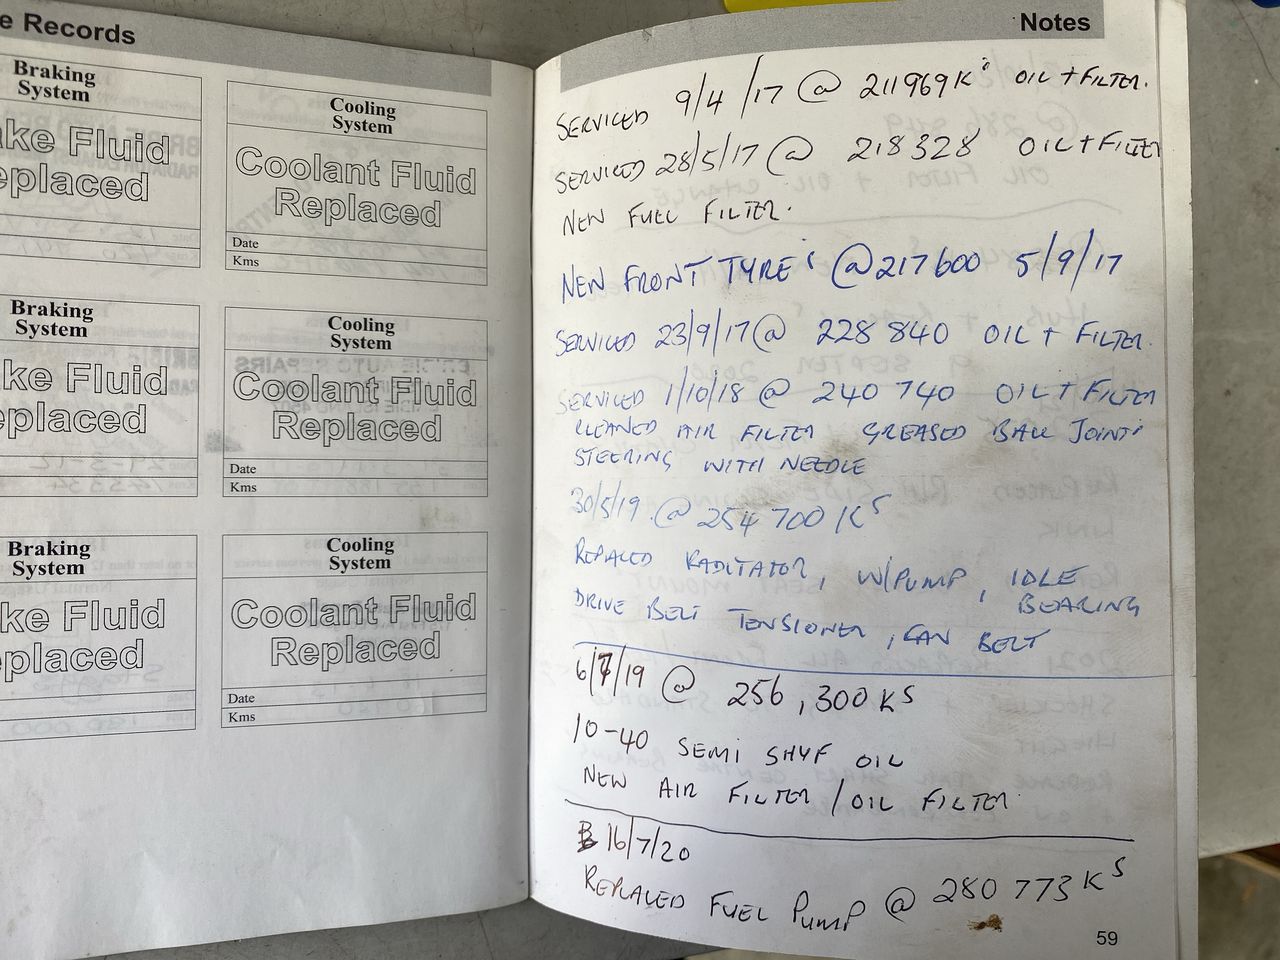 e Records
Braking
System
ke Fluid
eplaced
Braking
System
ke Fluid
eplaced
Braking
System
ke Fluid
eplaced
Cooling
System
Coolant Fluid
Replaced
Date
Kms
Cooling
System
Coolant Fluid
Replaced
Date
Kms
Cooling
System
Coolant Fluid
Replaced
Date
Kms
Notes
SERVICED 9/4/17 @ 211969Ks OIL + FILTER.
SERVICED 28/5/17 @ 218328 OIL + FILTER
NEW FUEL FILTER.
NEW FRONT TYRES @ 217600 5/9/17
SERVICED 23/9/17 @ 228 840 OIL + FILTER.
SERVICED 1/10/18 @ 240 740 OIL + FILTER
CLEANED AIR FILTER GREASED BALL JOINTS
STEERING WITH NEEDLE
30/5/19 @ 254 700 KS
REPALCED RADITATOR, W/PUMP, IDLE BEARING
DRIVE BELT TENSIONER, FAN BELT
6/7/19 @ 256,300 KS
10-40 SEMI OIL
NEW AIR FILTER / OIL FILTER
16/7/20
REPLACED FUEL PUMP @ 280 773 KS
59